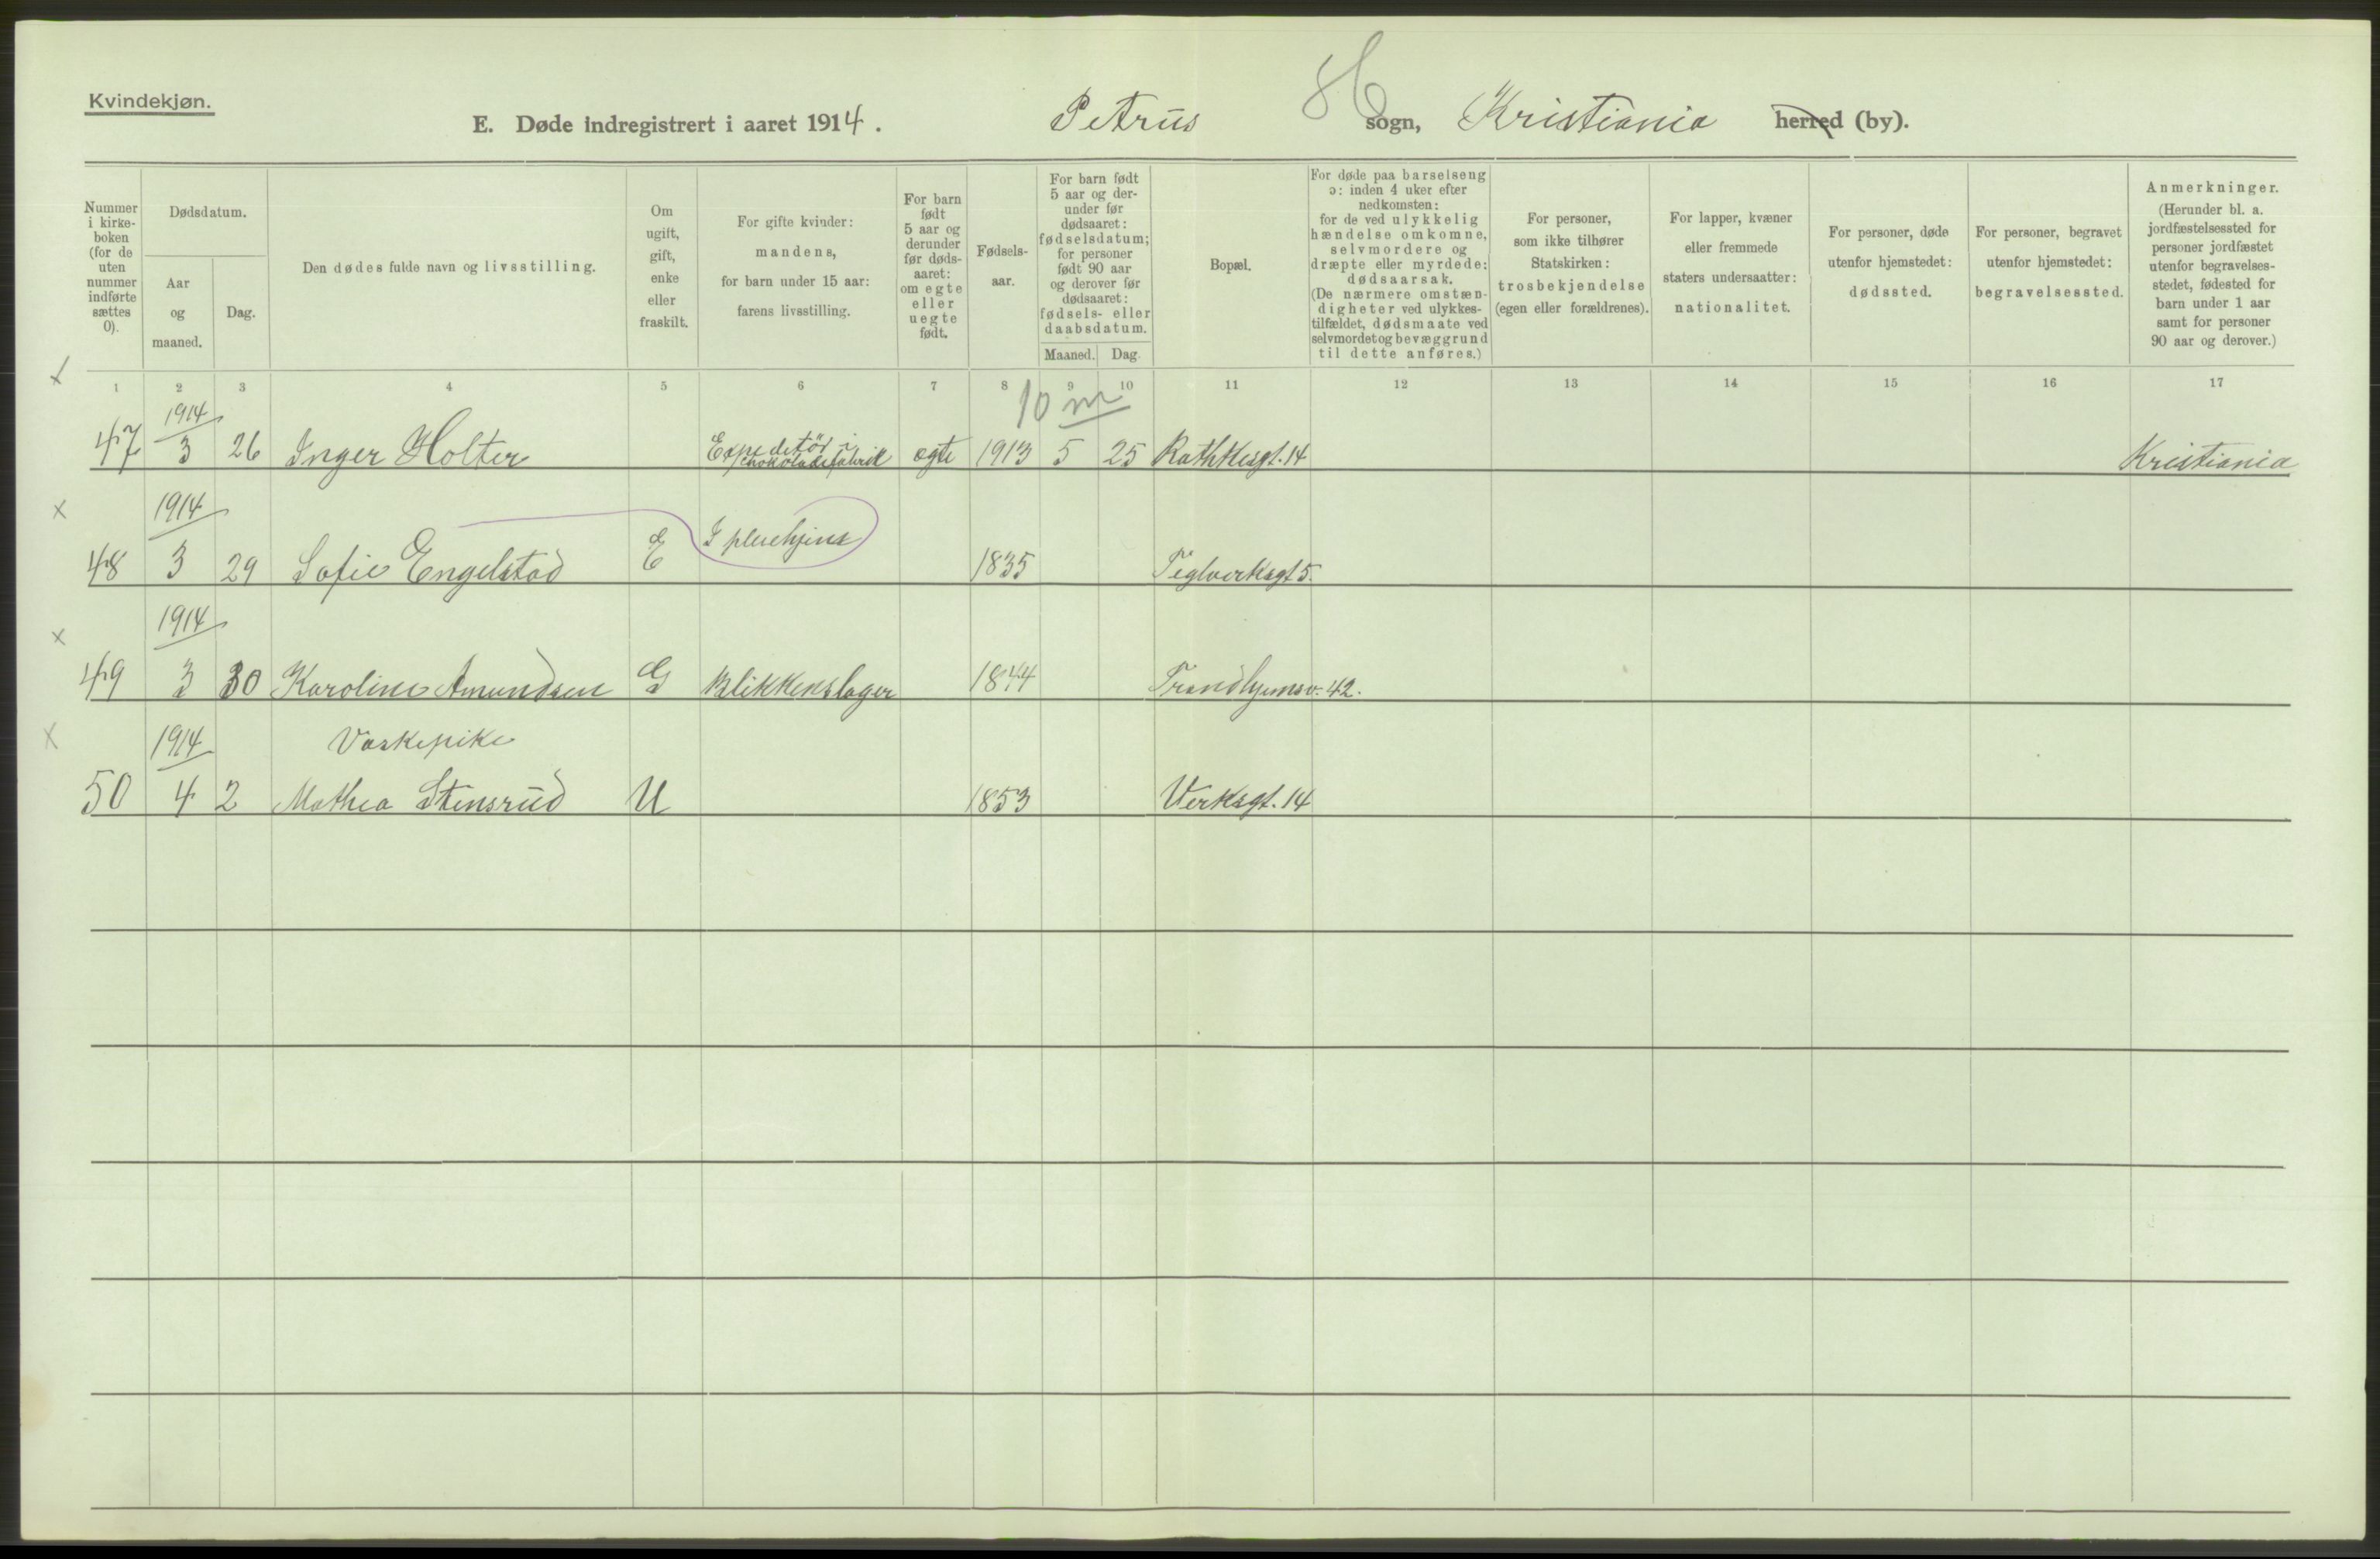 Kvindekjøn.
E. Døde indregistrert i aaret 1914. Petrus sogn, Kristiania herred (by).
Nummer i kirke-boken (for de uten nummer indførte sættes 0).
Dødsdatum.
Aar og maaned.
Dag.
Den dødes fulde navn og livsstilling.
Om ugift, gift, enke eller fraskilt.
For gifte kvinder: mandens, for barn under 15 aar: farens livsstilling.
For barn født 5 aar og derunder før døds-aaret: om egte eller uegte født.
Fødsels-aar.
For barn født 5 aar og der-under før dødsaaret: fødselsdatum; for personer født 90 aar og derover før dødsaaret: fødsels- eller daabsdatum.
Maaned. Dag.
Bopæl.
For døde paa barselseng ɔ: inden 4 uker efter nedkomsten: for de ved ulykkelig hændelse omkomne, selvmordere og dræpte eller myrdede: dødsaarsak. (De nærmere omstæn-digheter ved ulykkes-tilfældet, dødsmaate ved selvmordet og bevæggrund til dette anføres.)
For personer, som ikke tilhører Statskirken: trosbekjendelse (egen eller forældrenes).
For lapper, kvæner eller fremmede staters undersaatter: nationalitet.
For personer, døde utenfor hjemstedet: dødssted.
For personer, begravet utenfor hjemstedet: begravelsessted.
Anmerkninger. (Herunder bl. a. jordfæstelsessted for personer jordfæstet utenfor begravelses-stedet, fødested for barn under 1 aar samt for personer 90 aar og derover.)
1 2 3 4 5 6 7 8 9 10 11 12 13 14 15 16 17
1914 10 m
47 3 26 Inger Holter Expeditör i chokoladefabrik egte 1913 5 25 Rathkesgt. 14 Kristiania
x 1914
48 3 29 Sofie Engelstad E I pleiehjem 1835 Teglverksgt 5.
x 1914
49 3 30 Karoline Amundsen G Blikkenslager 1844 Trondhjemsv. 42.
x 1914 Vaskepike
50 4 2 Mathea Stensrud U 1853 Verksgt. 14